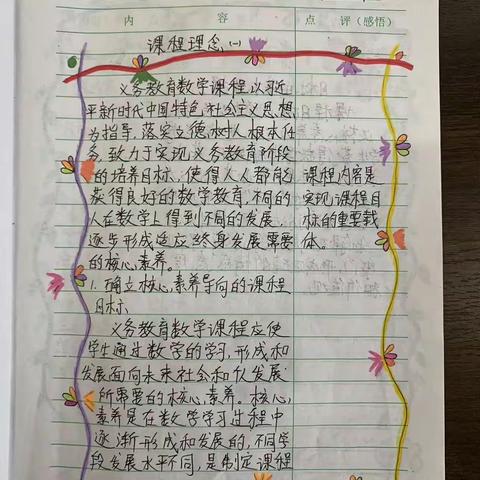 内 容 点 评（感悟）
课程理念（一）
义务教育数学课程以习近
平新时代中国特色社会主义思想
为指导，落实立德树人根本任
务，致力于实现义务教育阶段
的培养目标，使得人人都能
获得良好的数学教育，不同的
人在数学上得到不同的发展，
逐步形成适应终身发展需要
的核心素养。
课程内容是
实现课程目
标的重要载
体。
1. 确立核心素养导向的课程
目标
义务教育数学课程应使
学生通过数学的学习，形成和
发展面向未来社会和个人发展
所需要的核心素养。核心
素养是在数学学习过程中
逐渐形成和发展的，不同学
段发展水平不同，是制定课程